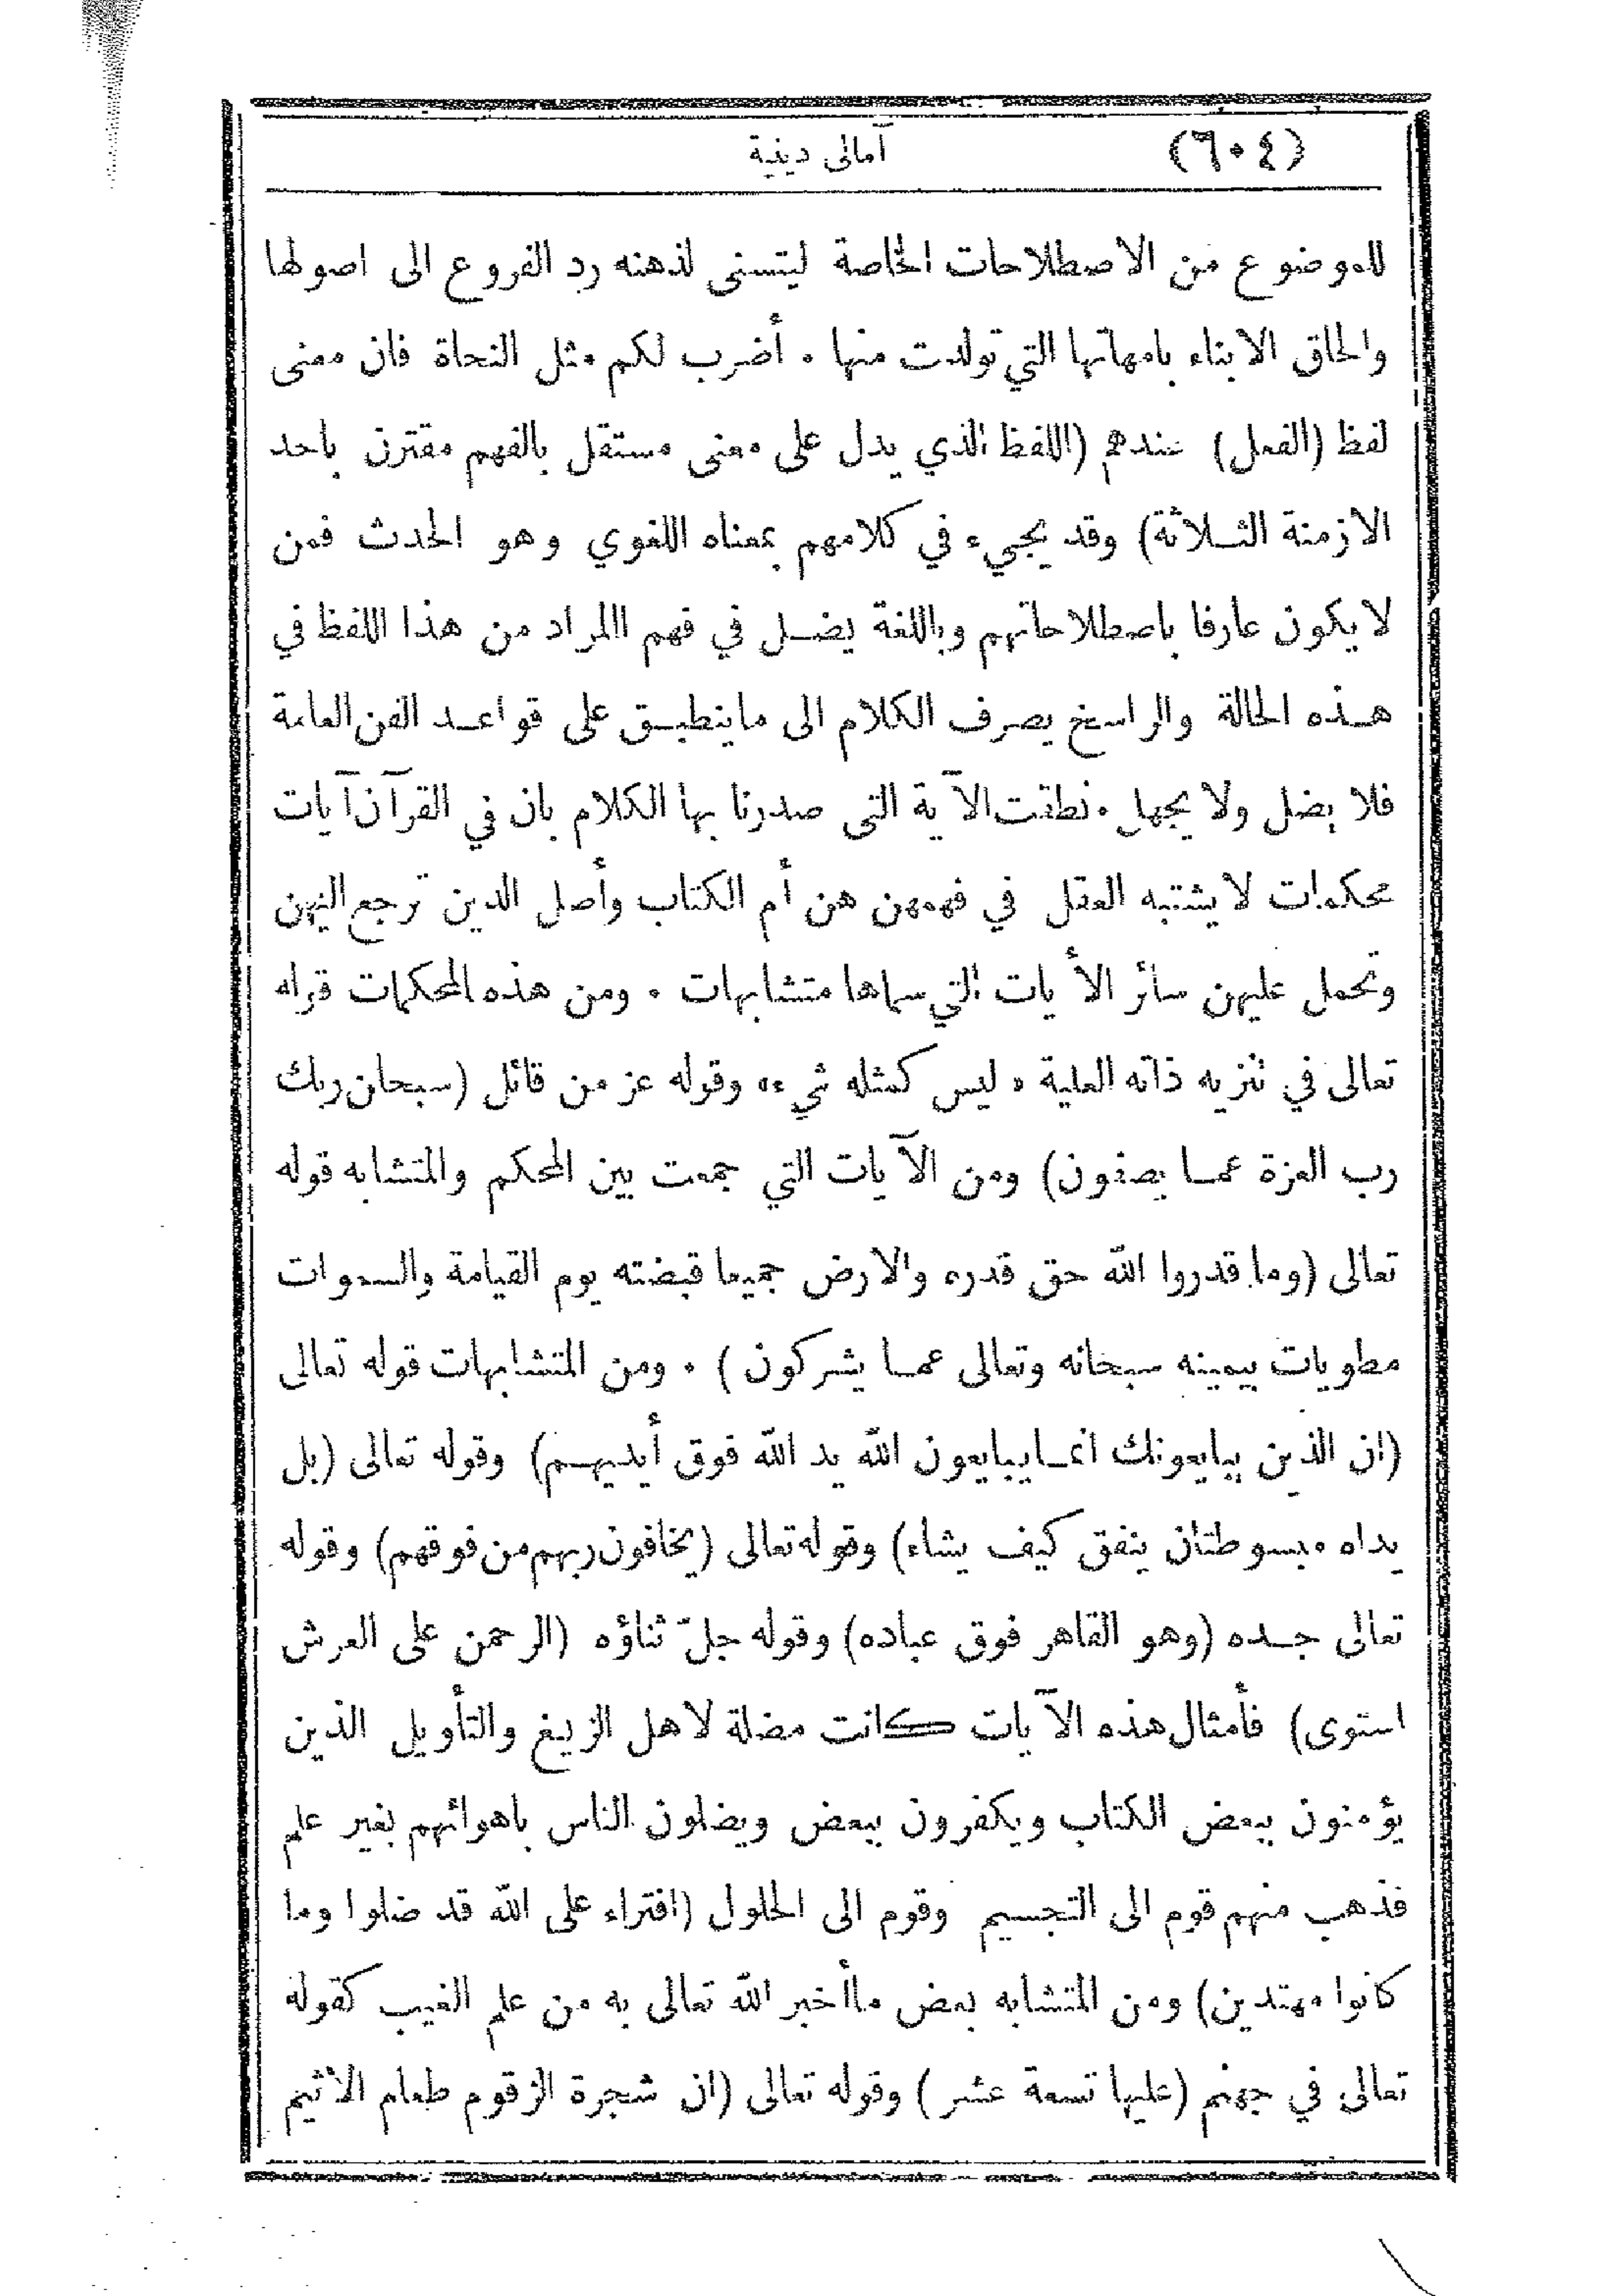 (٦٠٤) آمالى دينية
للموضوع من الاصطلاحات الخاصة ليتسنى لذهنه رد الفروع الى اصولها
والحاق الابناء بامهاتها التي تولدت منها ٠ أضرب لكم مثل النحاة فان معنى
لفظ (الفعل) عندهم (اللفظ الذي يدل على معنى مستقل بالفهم مقترن باحد
الازمنة الثـلاثة) وقد يجيء في كلامهم بمعناه اللغوي وهو الحدث فمن
لا يكون عارفا باصطلاحاتهم وباللغة يضـل في فهم االمراد من هذا اللفظ في
هـذه الحالة والراسخ يصرف الكلام الى ماينطبـق على قواعـد الفن العامة
فلا يضل ولا يجهل ٠ نطقت الآية التى صدرنا بها الكلام بان في القرآن آيات
محكمات لا يشتبه العقل في فهمهن هن أم الكتاب وأصل الدين ترجع اليهن
وتحمل عليهن سائر الأيات التي سماها متشابهات ٠ ومن هذه المحكمات قوله
تعالى في تنزيه ذاته العلية ٠ ليس كمثله شيء ٠ وقوله عز من قائل (سبحان ربك
رب العزة عمـا يصفون) ومن الآيات التي جمعت بين المحكم والمتشابه قوله
تعالى (وما قدروا الله حق قدره والارض جميعا قبضته يوم القيامة والسموات
مطويات بيمينه سبحانه وتعالى عمـا يشركون ) ٠ ومن المتشابهات قوله تعالى
(ان الذين يبايعونك انمـا يبايعون الله يد الله فوق أيديهـم) وقوله تعالى (بل
يداه مبسوطتان ينفق كيف يشاء) وقوله تعالى (يخافون ربهم من فوقهم) وقوله
تعالى جـده (وهو القاهر فوق عباده) وقوله جلّ ثناؤه (الرحمن على العرش
استوى) فأمثال هذه الآيات كانت مضلة لاهل الزيغ والتأويل الذين
يؤمنون ببعض الكتاب ويكفرون ببعض ويضلون الناس باهوائهم بغير علم
فذهب منهم قوم الى التجسيم وقوم الى الحلول (افتراء على الله قد ضلوا وما
كانوا مهتدين) ومن المتشابه بعض ماأخبر الله تعالى به من علم الغيب كقوله
تعالى في جهنم (عليها تسعة عشر ) وقوله تعالى (ان شجرة الزقوم طعام الاثيم